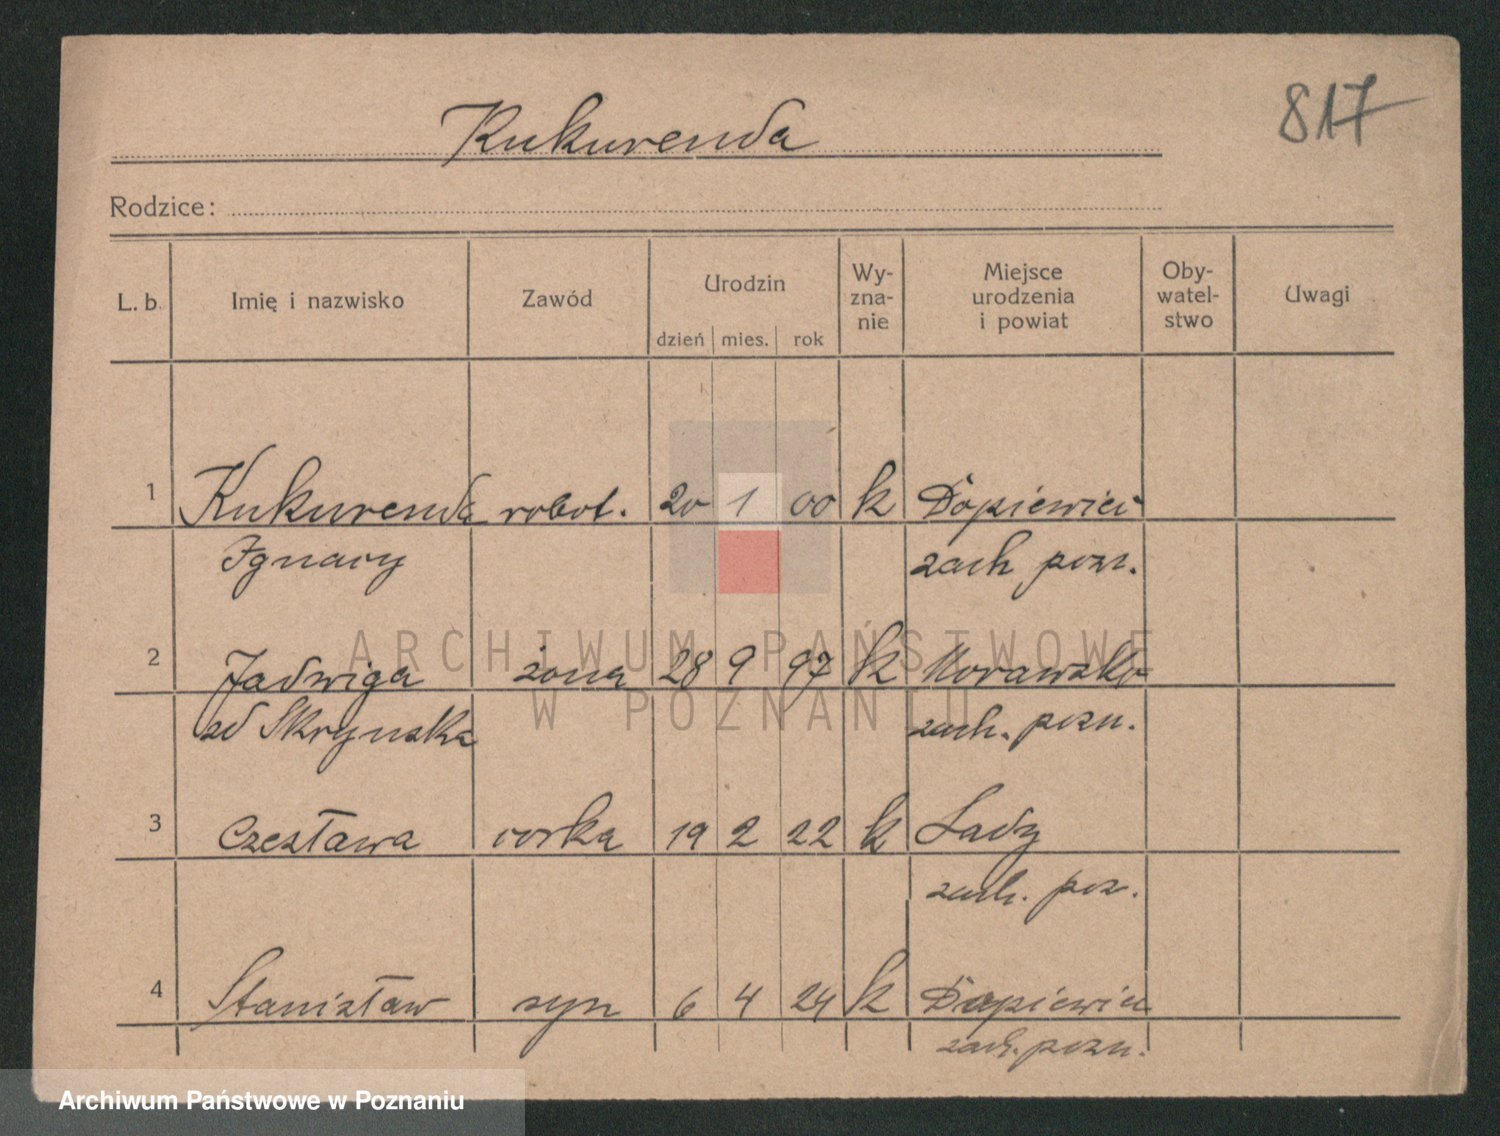 817
Kukurenda
Rodzice:
L. b. Imię i nazwisko Zawód Urodzin dzień mies. rok Wy-zna-nie Miejsce urodzenia i powiat Oby-watel-stwo Uwagi
1 Kukurenda robot. 20 1 00 k Dopiewiec
Ignacy zach pozn.
2 Jadwiga żona 28 9 97 k Morawsko
zd Skrynska zach. pozn.
3 Czesława corka 19 2 22 k Lady
zach. poz.
4 Stanisław syn 6 4 24 k Dopiewiec
zach. pozn.
ARCHIWUM PAŃSTWOWE
W POZNANIU
Archiwum Państwowe w Poznaniu